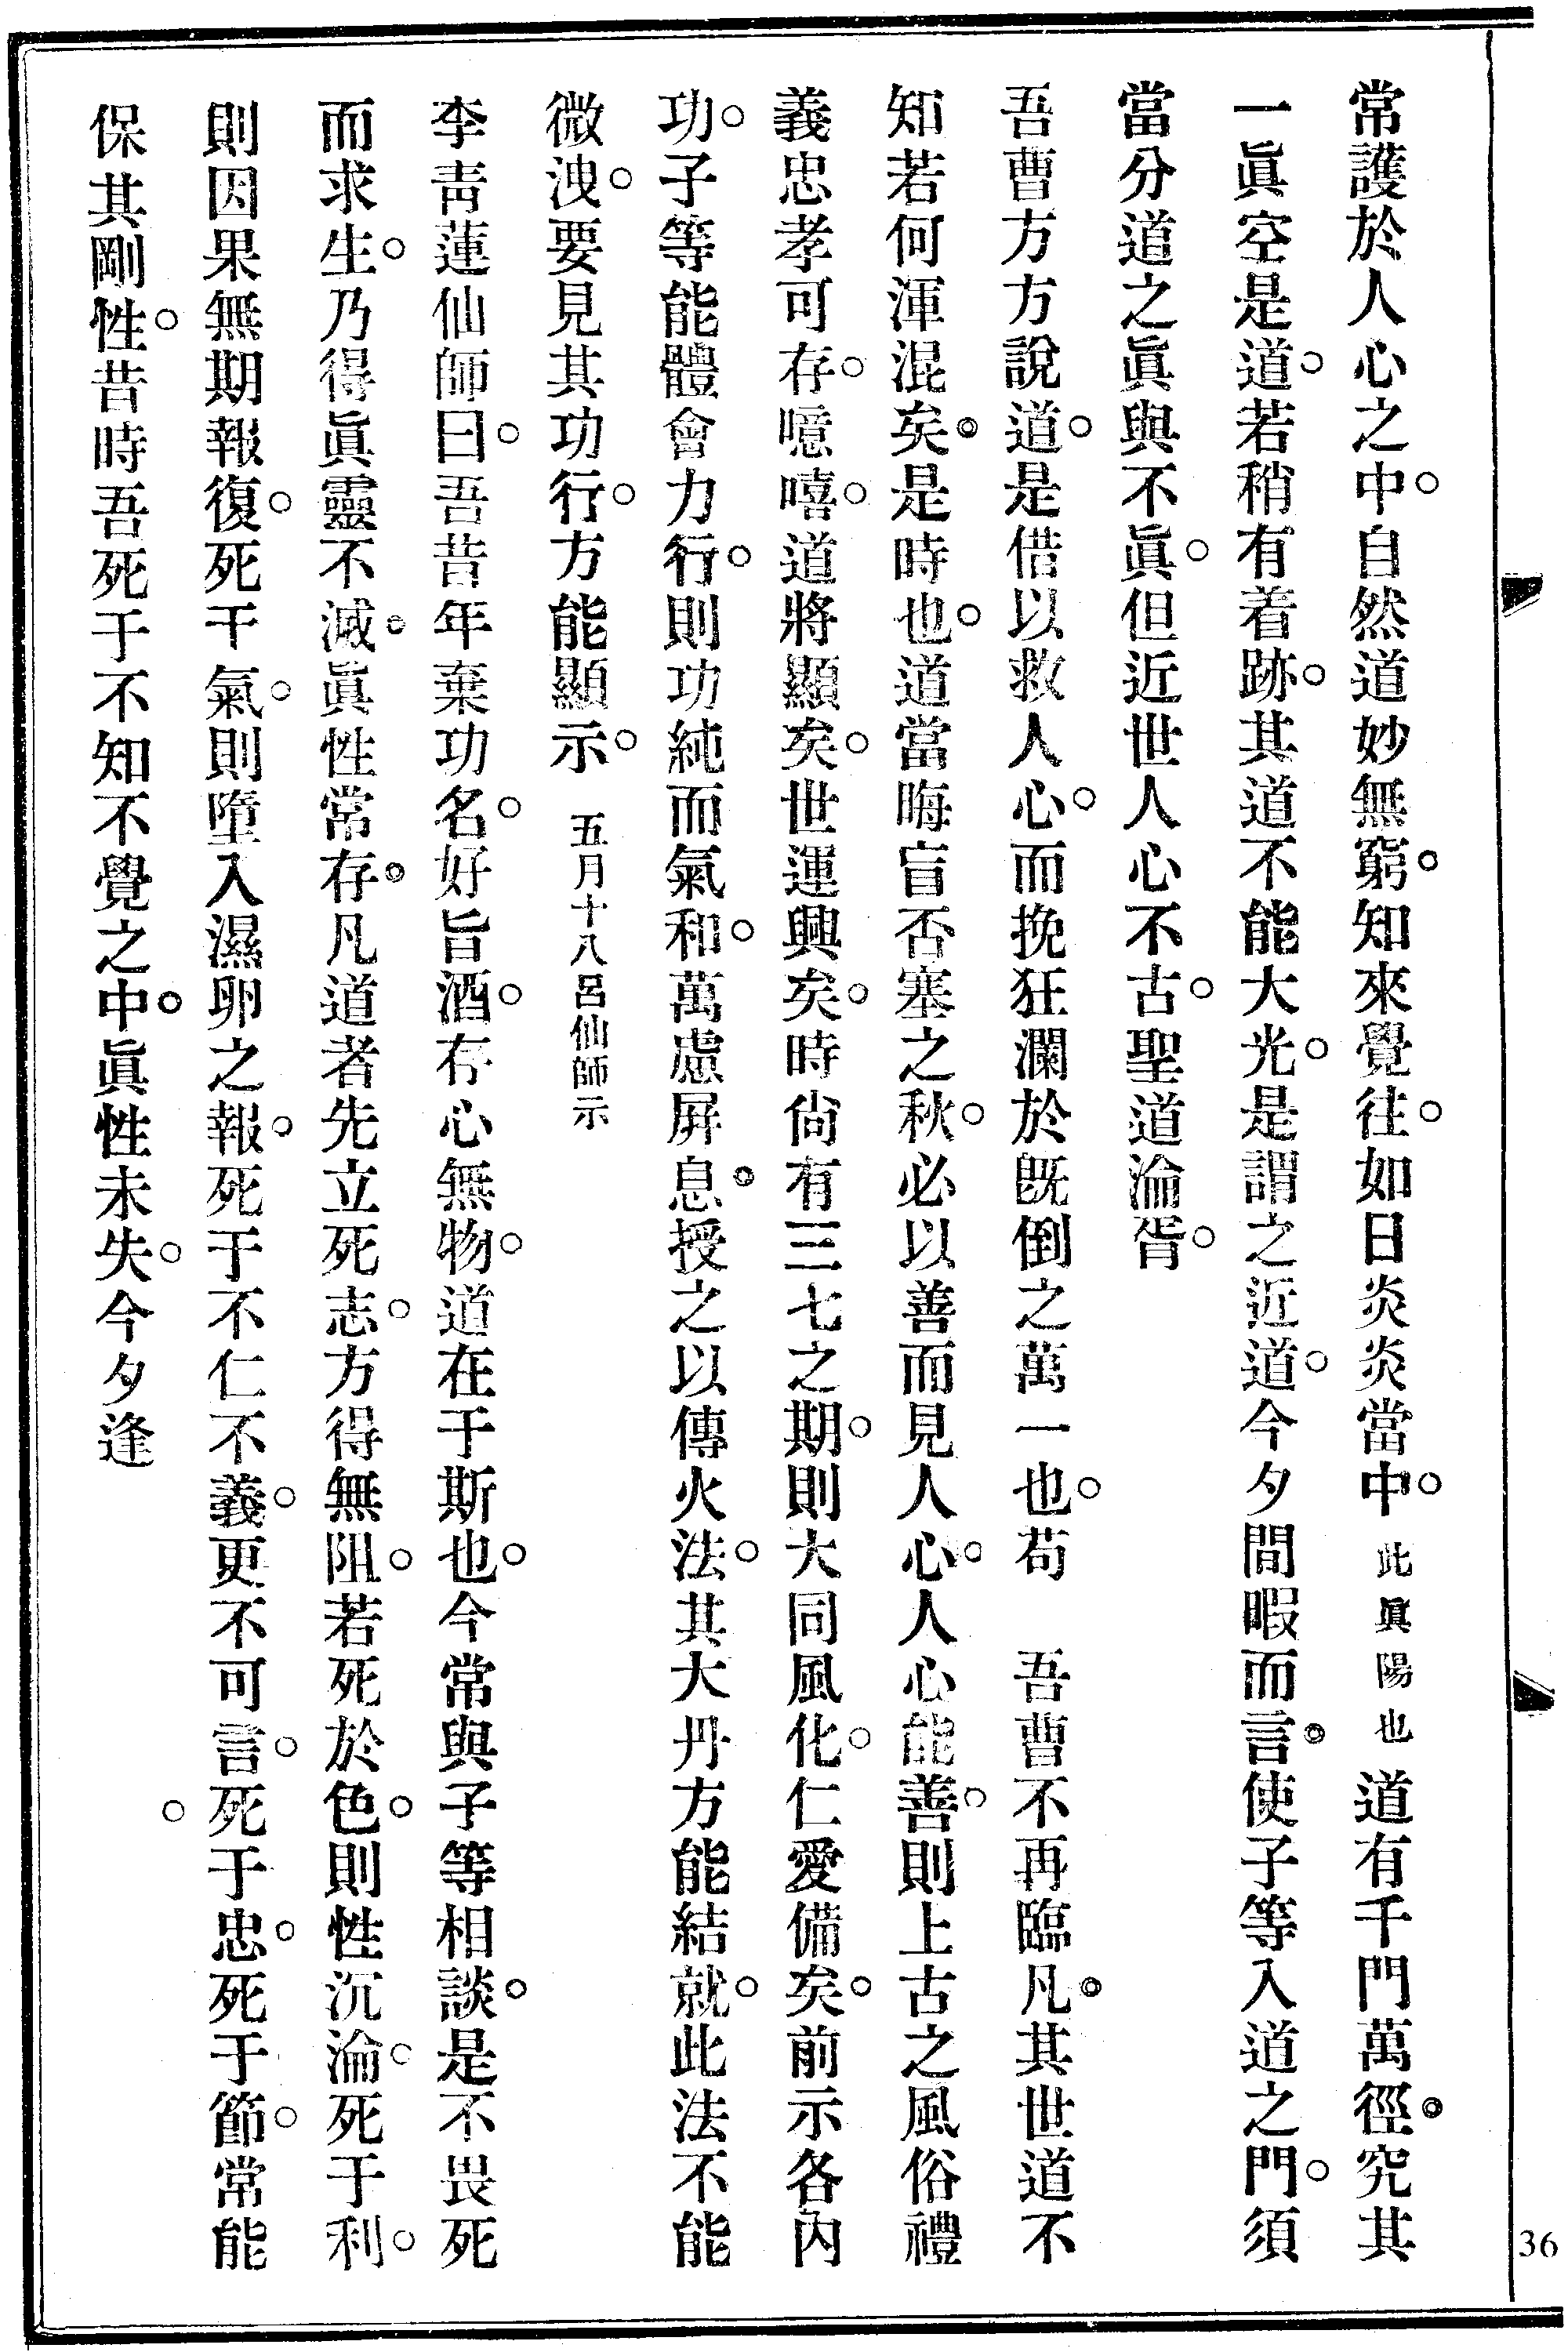 常護於人心之中。自然道妙無窮。知來覺往。如日炎炎當中。此眞陽也 道有千門萬徑。究其
一眞空是道。若稍有着跡。其道不能大光。是謂之近道。今夕間暇而言。使子等入道之門。須
當分道之眞與不眞。但近世人心不古。聖道淪胥。
吾曹方方說道。是借以救人心。而挽狂瀾於既倒之萬一也。苟 吾曹不再臨凡。其世道不
知若何渾混矣。是時也。道當晦盲否塞之秋。必以善而見人心。人心能善。則上古之風俗禮
義忠孝可存。噫嘻。道將顯矣。世運興矣。時尙有三七之期。則大同風化。仁愛備矣。前示各內
功。子等能體會力行。則功純而氣和。萬慮屏息。授之以傳火法。其大丹方能結就。此法不能
微洩。要見其功行。方能顯示。 五月十八呂仙師示
李靑蓮仙師曰。吾昔年棄功名。好旨酒。存心無物。道在于斯也。今常與子等相談。是不畏死
而求生。乃得眞靈不滅。眞性常存。凡道者先立死志。方得無阻。若死於色。則性沉淪。死于利。
則因果無期報復。死于氣。則墮入濕卵之報。死于不仁不義。更不可言。死于忠。死于節。常能
保其剛性。昔時吾死于不知不覺之中。眞性未失。今夕逢
36